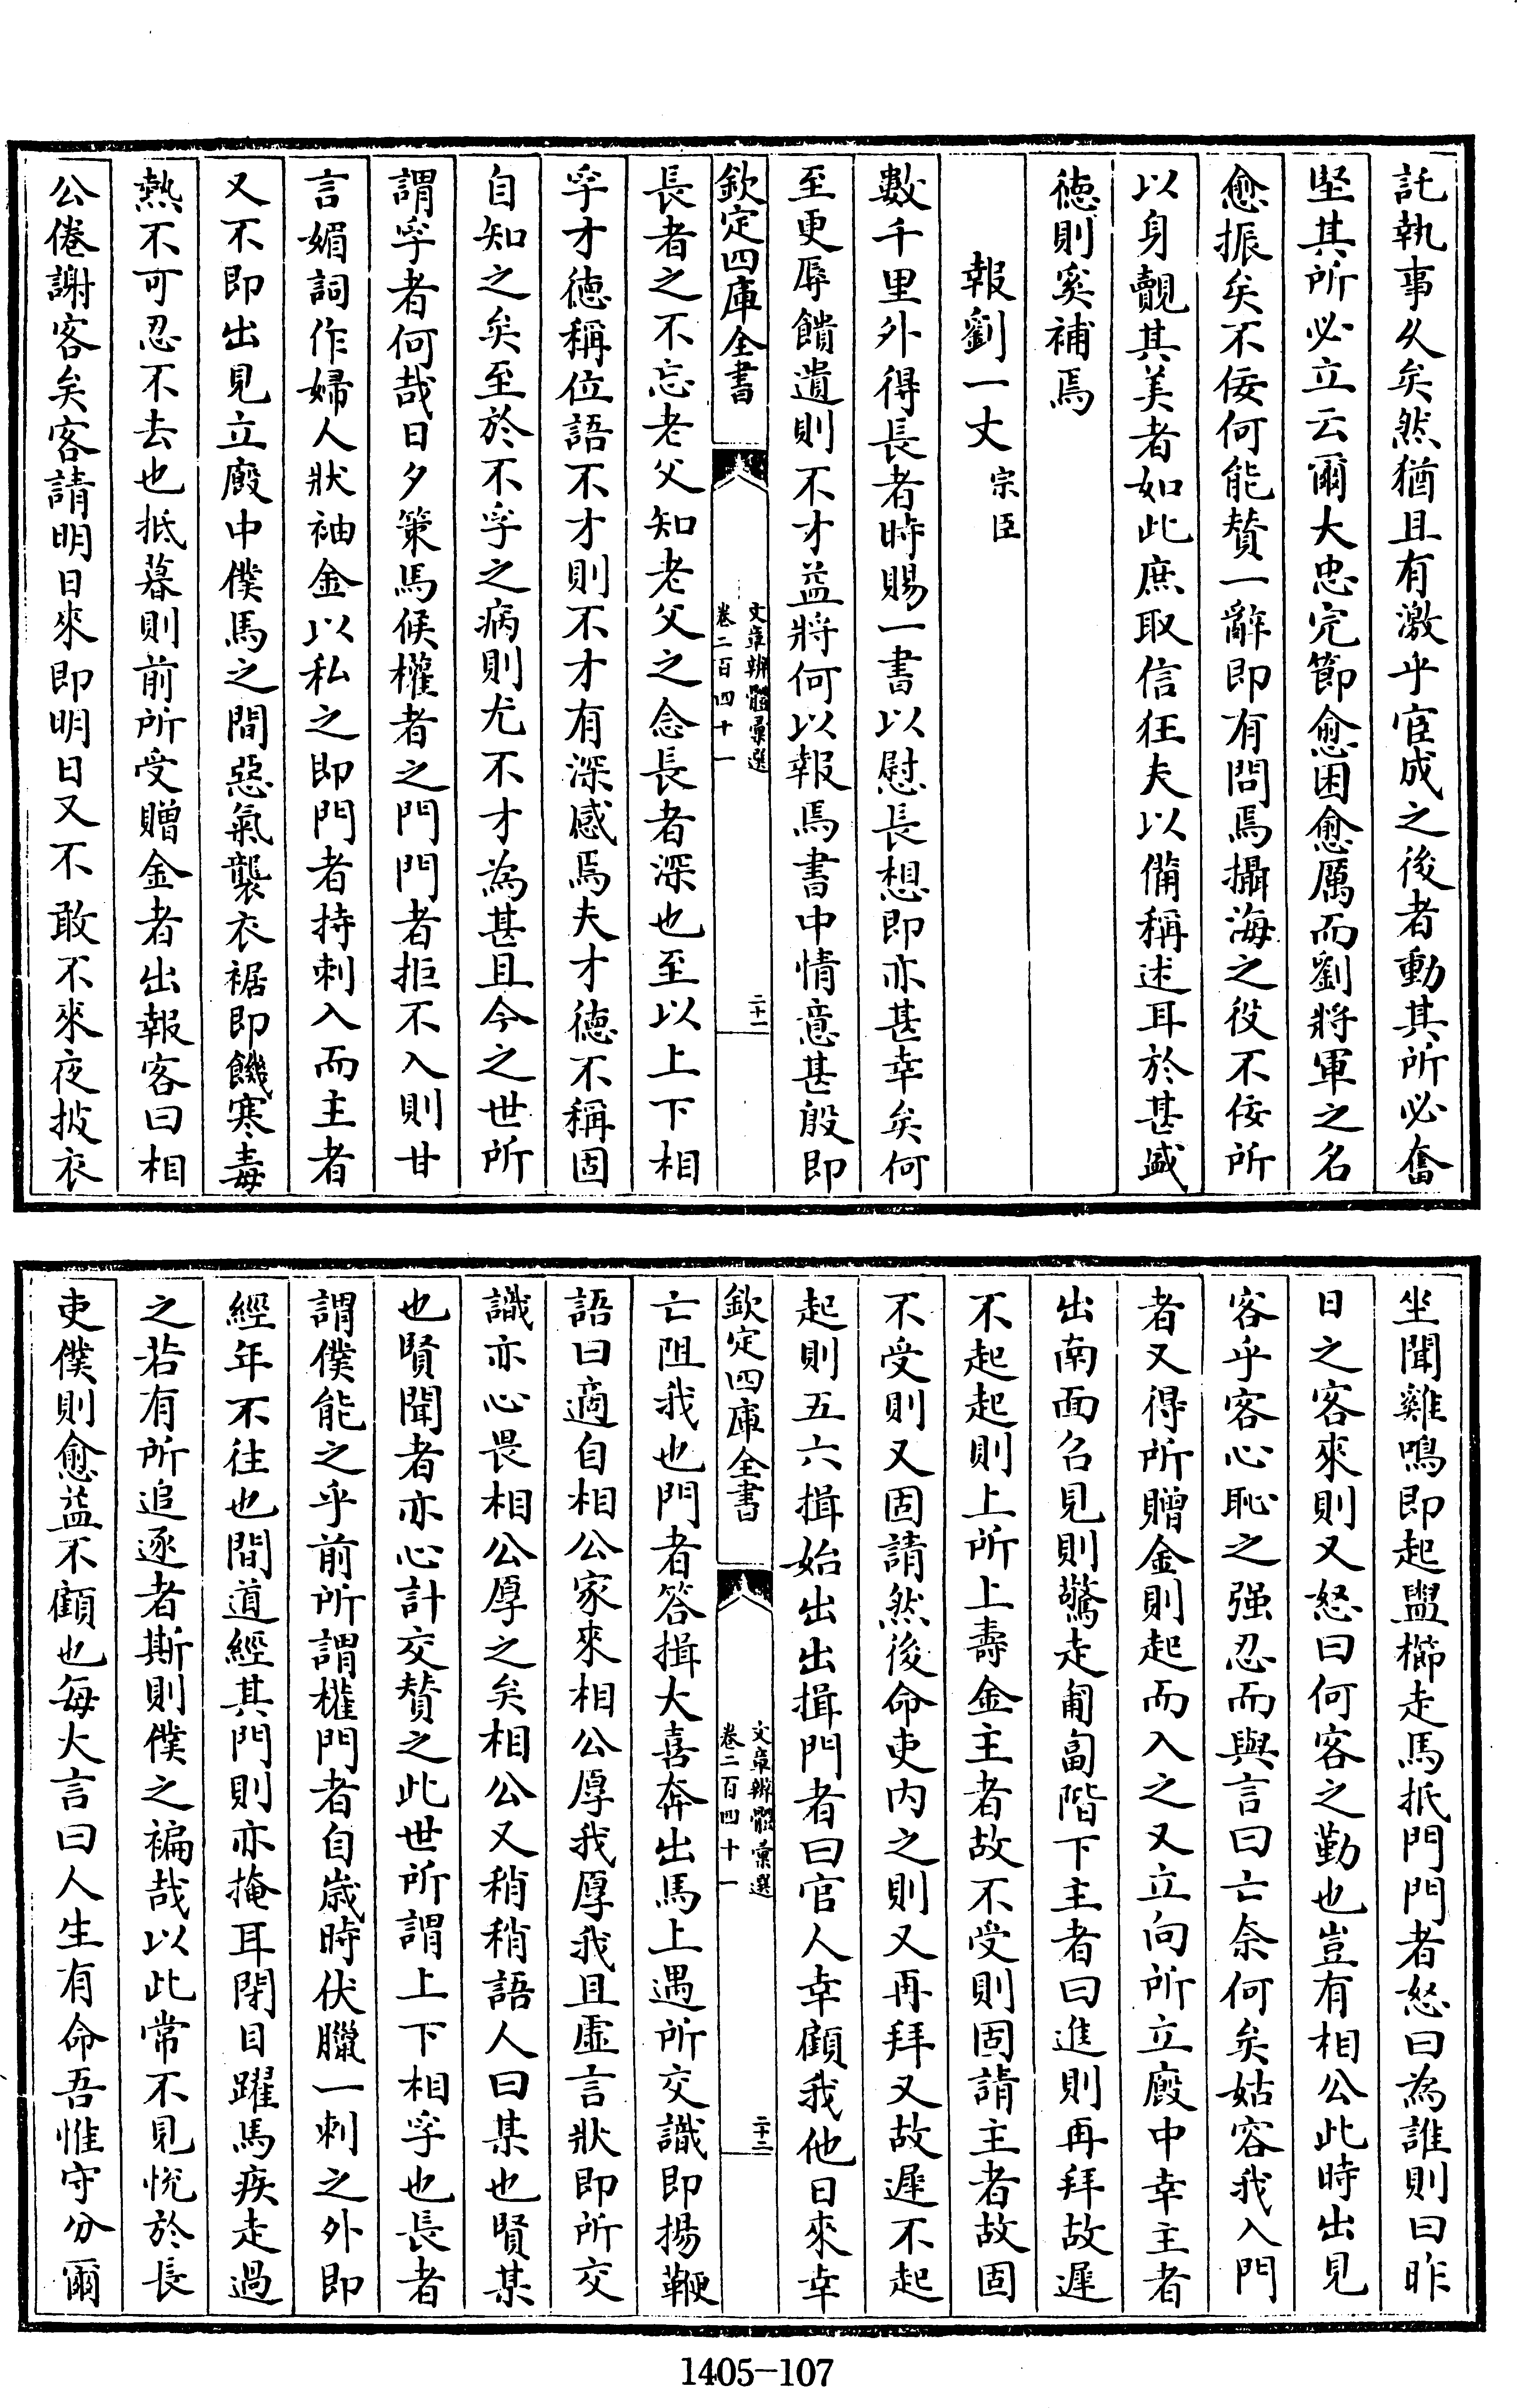 託執事久矣然猶且有激乎宦成之後者動其所必奮
堅其所必立云爾大忠完節愈困愈厲而劉將軍之名
愈振矣不佞何能贊一辭即有問焉攝海之役不佞所
以身覿其美者如此庶取信狂夫以備稱述耳於甚盛
德則奚補焉
報劉一丈 宗臣
數千里外得長者時賜一書以慰長想即亦甚幸矣何
至更辱饋遺則不才益將何以報焉書中情意甚殷即
欽定四庫全書
文章辨體彙選
卷二百四十一
二十一
長者之不忘老父知老父之念長者深也至以上下相
孚才德稱位語不才則不才有深感焉夫才德不稱固
自知之矣至於不孚之病則尤不才為甚且今之世所
謂孚者何哉日夕策馬候權者之門門者拒不入則甘
言媚詞作婦人狀袖金以私之即門者持刺入而主者
又不即出見立廄中僕馬之間惡氣襲衣裾即饑寒毒
熱不可忍不去也抵暮則前所受贈金者出報客曰相
公倦謝客矣客請明日來即明日又不敢不來夜披衣
坐聞雞鳴即起盥櫛走馬抵門門者怒曰為誰則曰昨
日之客來則又怒曰何客之勤也豈有相公此時出見
客乎客心恥之强忍而與言曰亡奈何矣姑容我入門
者又得所贈金則起而入之又立向所立廄中幸主者
出南面召見則驚走匍匐階下主者曰進則再拜故遲
不起起則上所上壽金主者故不受則固請主者故固
不受則又固請然後命吏内之則又再拜又故遲不起
起則五六揖始出出揖門者曰官人幸顧我他日來幸
欽定四庫全書
文章辨體彙選
卷二百四十一
二十二
亡阻我也門者答揖大喜奔出馬上遇所交識即揚鞭
語曰適自相公家來相公厚我厚我且虛言狀即所交
識亦心畏相公厚之矣相公又稍稍語人曰某也賢某
也賢聞者亦心計交贊之此世所謂上下相孚也長者
謂僕能之乎前所謂權門者自歲時伏臘一刺之外即
經年不往也間道經其門則亦掩耳閉目躍馬疾走過
之若有所追逐者斯則僕之褊哉以此常不見悅於長
吏僕則愈益不顧也每大言曰人生有命吾惟守分爾
1405-107